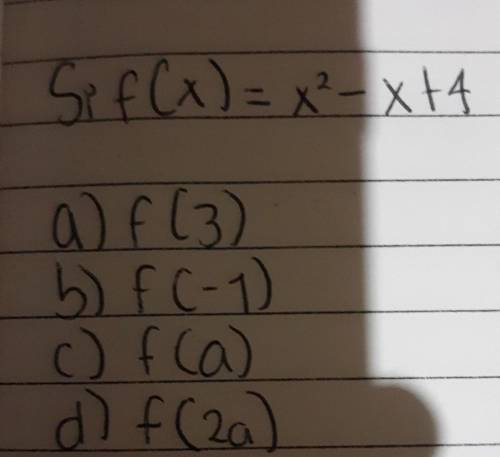 Si f(x) = x² - x + 4
a) f(3)
b) f(-1)
c) f(a)
d) f(2a)